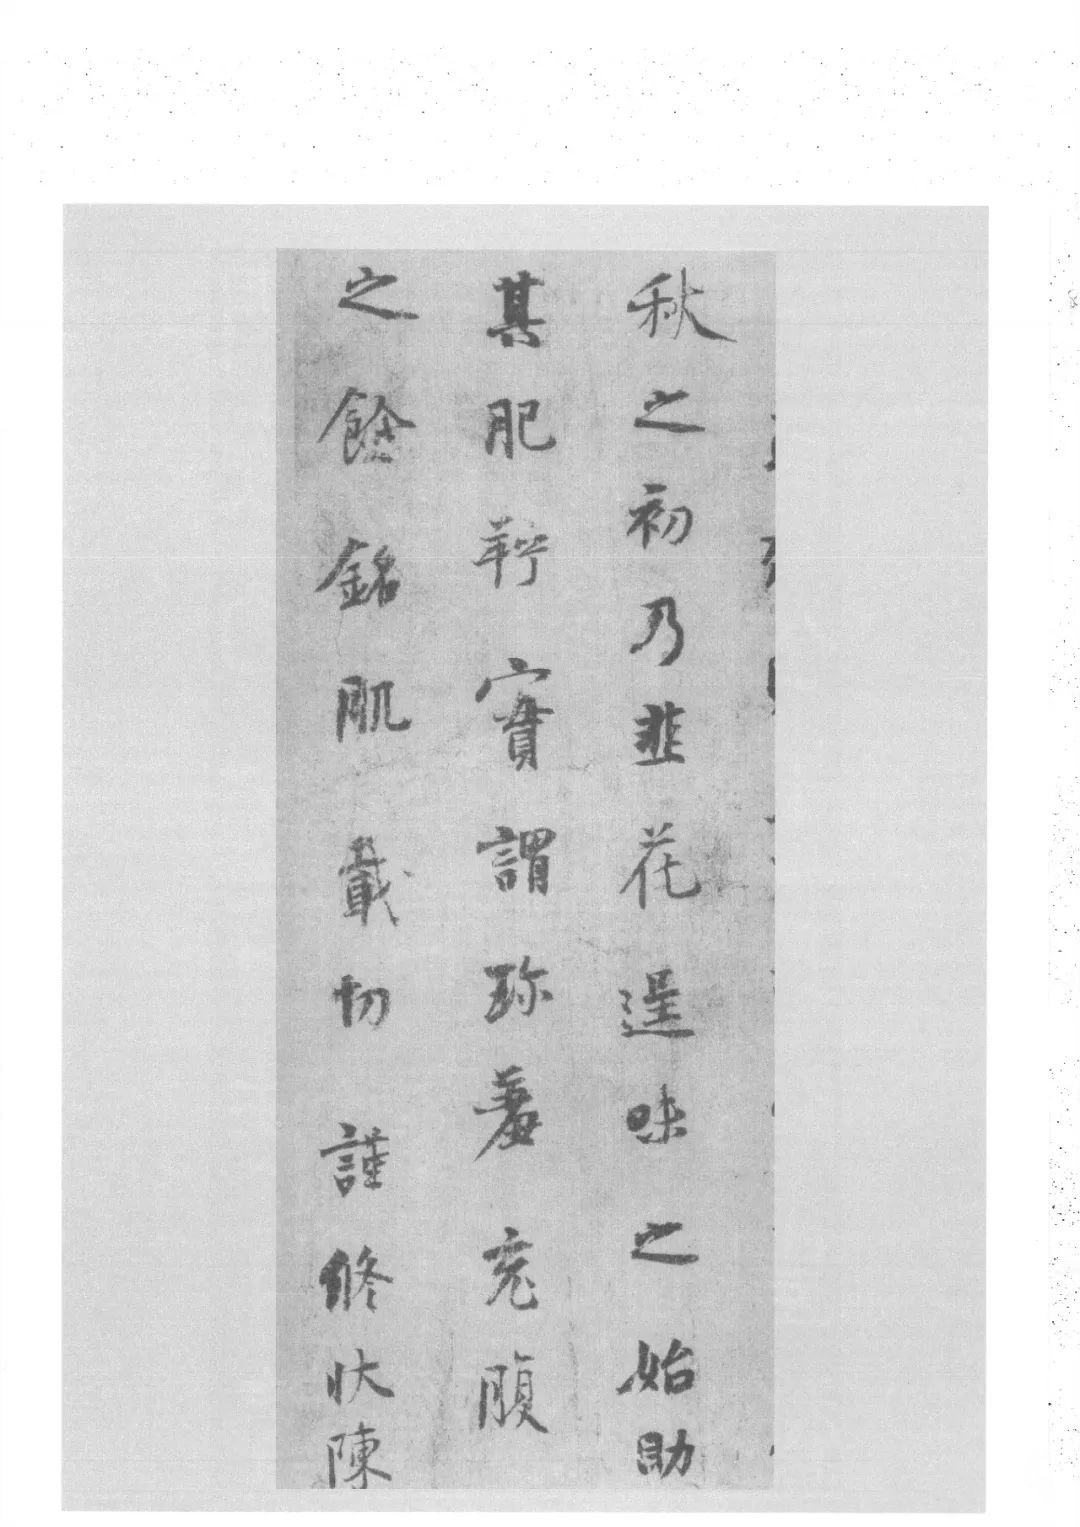 秋之初乃韭花逞味之始助
其肥羜實謂珍羞充腹
之餘銘肌載切謹修狀陳